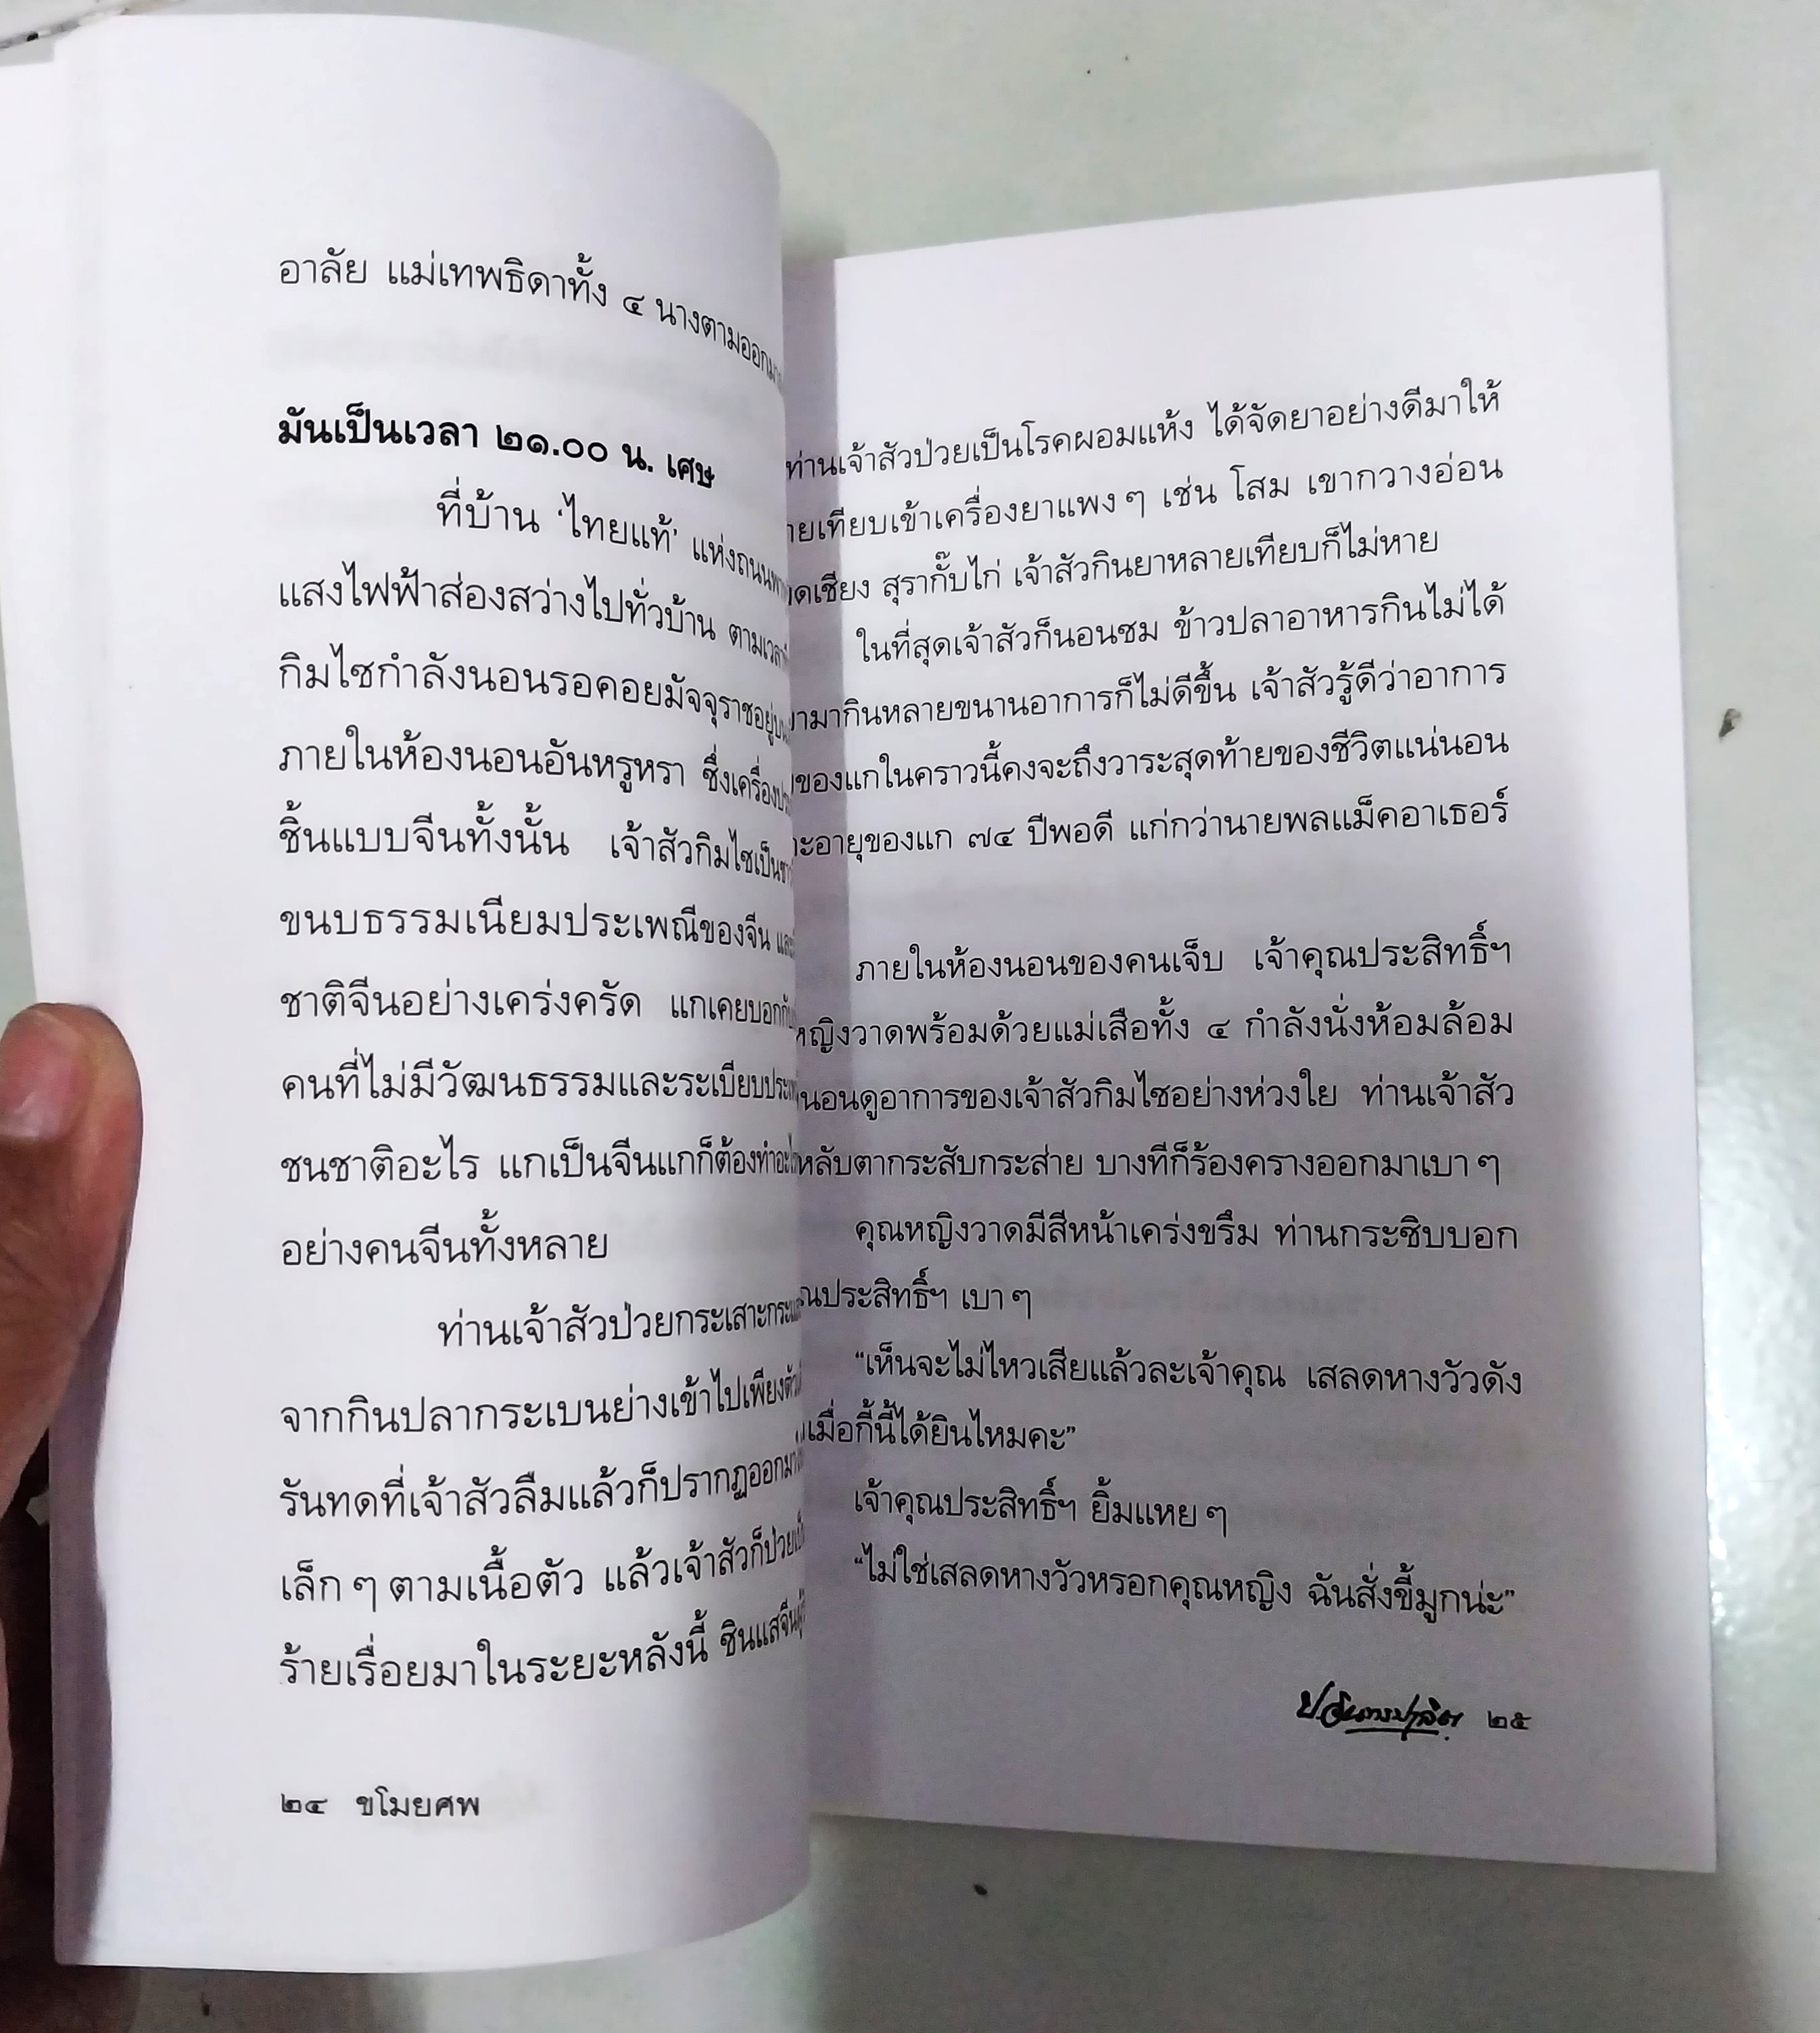 อาลัย แม่เทพธิดาทั้ง ๔ นางตามออกมา
มันเป็นเวลา ๒๑.๐๐ น. เศษ
ที่บ้าน ‘ไทยแท้’ แห่งถนน
แสงไฟฟ้าส่องสว่างไปทั่วบ้าน ตามเวลา
กิมไซกำลังนอนรอคอยมัจจุราชอยู่
ภายในห้องนอนอันหรูหรา ซึ่งเครื่อง
ชิ้นแบบจีนทั้งนั้น เจ้าสัวกิมไซเป็น
ขนบธรรมเนียมประเพณีของจีน
ชาติจีนอย่างเคร่งครัด แกเคยบอก
คนที่ไม่มีวัฒนธรรมและระเบียบ
ชนชาติอะไร แกเป็นจีนแกก็ต้องทำ
อย่างคนจีนทั้งหลาย
ท่านเจ้าสัวป่วยกระเสาะ
จากกินปลากระเบนย่างเข้าไปเพียง
รันทดที่เจ้าสัวลืมแล้วก็ปรากฏออกมา
เล็ก ๆ ตามเนื้อตัว แล้วเจ้าสัวก็ป่วย
ร้ายเรื่อยมาในระยะหลังนี้ ซินแสจีน
๒๔ ขโมยศพ
ท่านเจ้าสัวป่วยเป็นโรคผอมแห้ง ได้จัดยาอย่างดีมาให้
เทียบเข้าเครื่องยาแพง ๆ เช่น โสม เขากวางอ่อน
สุรากั๊บไก่ เจ้าสัวกินยาหลายเทียบก็ไม่หาย
ในที่สุดเจ้าสัวก็นอนซม ข้าวปลาอาหารกินไม่ได้
มากินหลายขนานอาการก็ไม่ดีขึ้น เจ้าสัวรู้ดีว่าอาการ
ของแกในคราวนี้คงจะถึงวาระสุดท้ายของชีวิตแน่นอน
อายุของแก ๗๔ ปีพอดี แก่กว่านายพลแม็คอาเธอร์
ภายในห้องนอนของคนเจ็บ เจ้าคุณประสิทธิ์ฯ
หญิงวาดพร้อมด้วยแม่เสือทั้ง ๔ กำลังนั่งห้อมล้อม
นอนดูอาการของเจ้าสัวกิมไซอย่างห่วงใย ท่านเจ้าสัว
หลับตากระสับกระส่าย บางทีก็ร้องครางออกมาเบา ๆ
คุณหญิงวาดมีสีหน้าเคร่งขรึม ท่านกระซิบบอก
ณประสิทธิ์ฯ เบา ๆ
“เห็นจะไม่ไหวเสียแล้วละเจ้าคุณ เสลดหางวัวดัง
เมื่อกี้นี้ได้ยินไหมคะ”
เจ้าคุณประสิทธิ์ฯ ยิ้มแหย ๆ
“ไม่ใช่เสลดหางวัวหรอกคุณหญิง ฉันสั่งขี้มูกน่ะ”
ป.อินทรปาลิต ๒๕